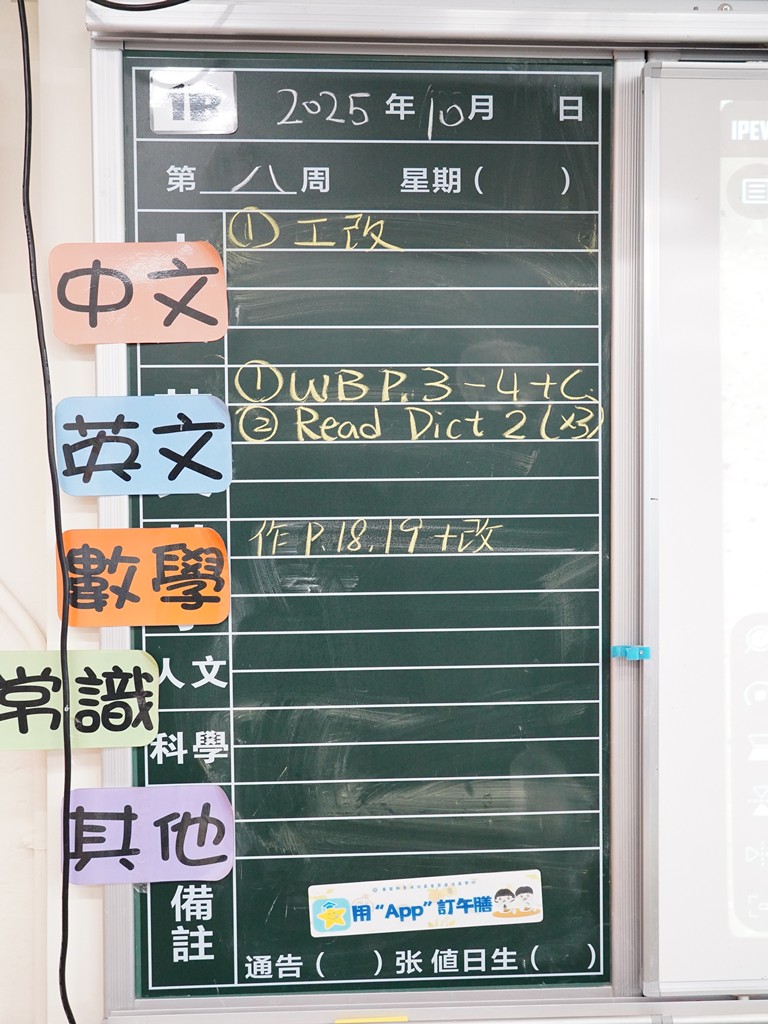 1B 2025年10月 日
第 八 周 星期( )
中文 ① 工改
英文 ① WB P.3-4+C.
② Read Dict 2 (x3)
數學 作 P.18,19+改
常識 人文
科學
其他
備註
用“App”訂午膳
通告( )张 值日生( )
IPEV